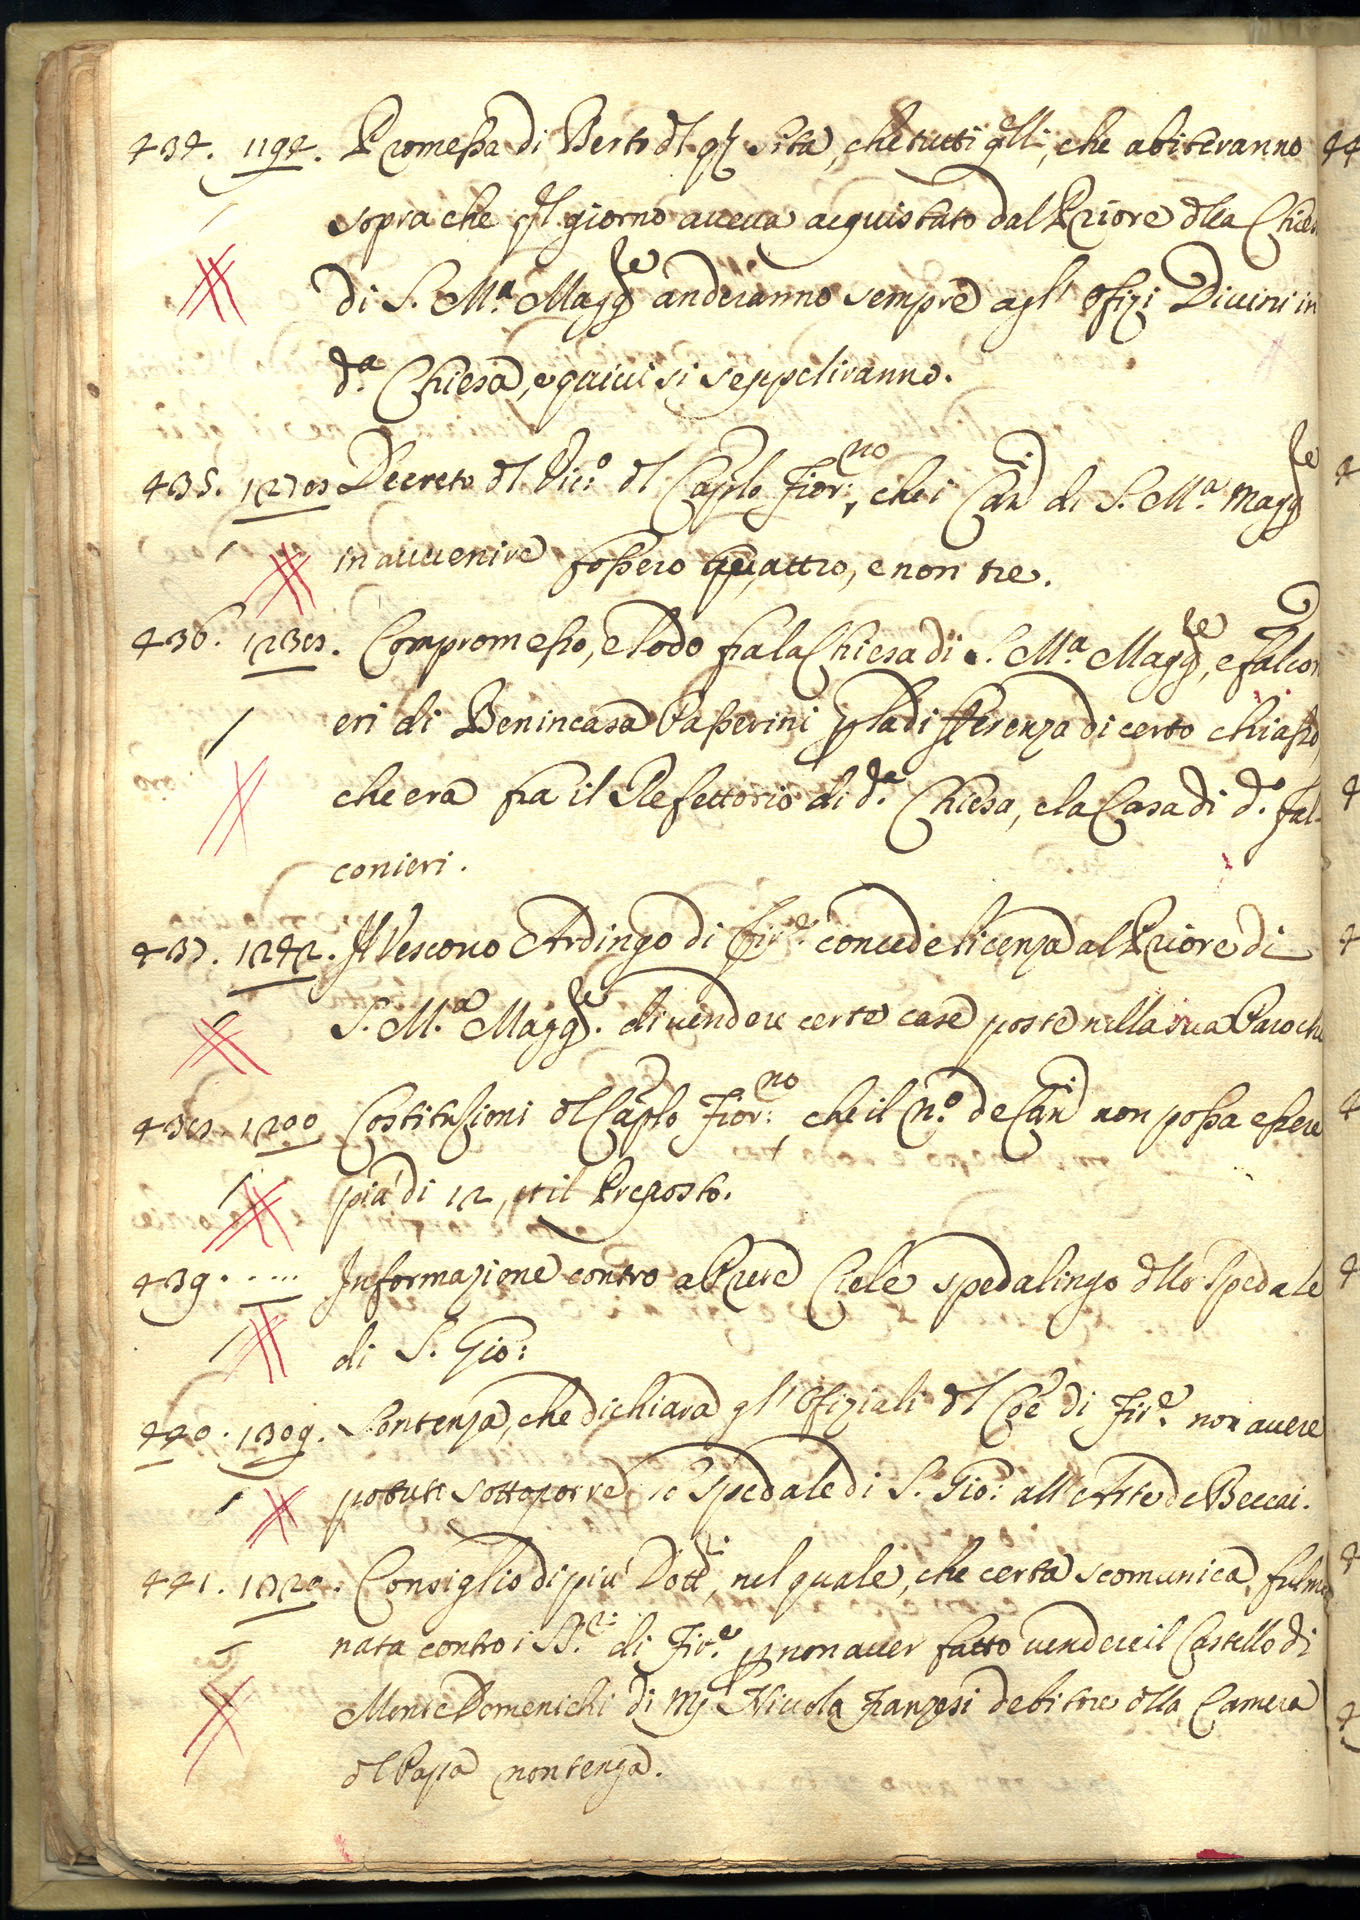 434. 1194. Promessa di Berto dl qd Sita, che tutti qlli, che abiteranno
sopra che ql giorno aveva acquistato dal Priore dlla Chies
di S. Ma. Magge anderanno sempre agl' Ofizi Divini in
da. Chiesa, e quivi si seppeliranno.
435. Decreto dl Vico: dl Caplo Fior:no, che i Cani di S. Ma. Magge
in avvenire fossero quattro, e non tre.
436. 1238. Compromesso, e Lodo fra la Chiesa di S. Ma. Magge, e Falcon
eri di Benincasa Passerini p la differenza di certo chiasso,
che era fra il Refettorio di da. Chiesa, e la Casa di do. Fal-
conieri.
437. 1242. Il Vescovo Ardingo di Fire. concede licenza al Priore di
S. M.a Magge. di vendere certe case poste nella sua Paroch
438. 1200 Costituzioni dl Caplo Fior:no, che il No. de Cani non possa essere
più di 12, et il Preposto.
439. ..... Informazione contro a Prete Cele spedalingo dllo Spedale
di S. Gio:
440. 1309. Sentenza, che dichiara gl' Ofiziali dl Coe di Fire. non avere
potuti sottoporre lo Spedale di S. Gio: all Arte de Beccai.
441. Consiglio di più Dotti, nel quale, che certa scomunica fulmi
nata contro i SS.ri di Fire. p non aver fatto vendere il Castello di
Monte Domenichi di Mr Niccola Franzesi debitore dlla Camera
dl Papa non tenga.